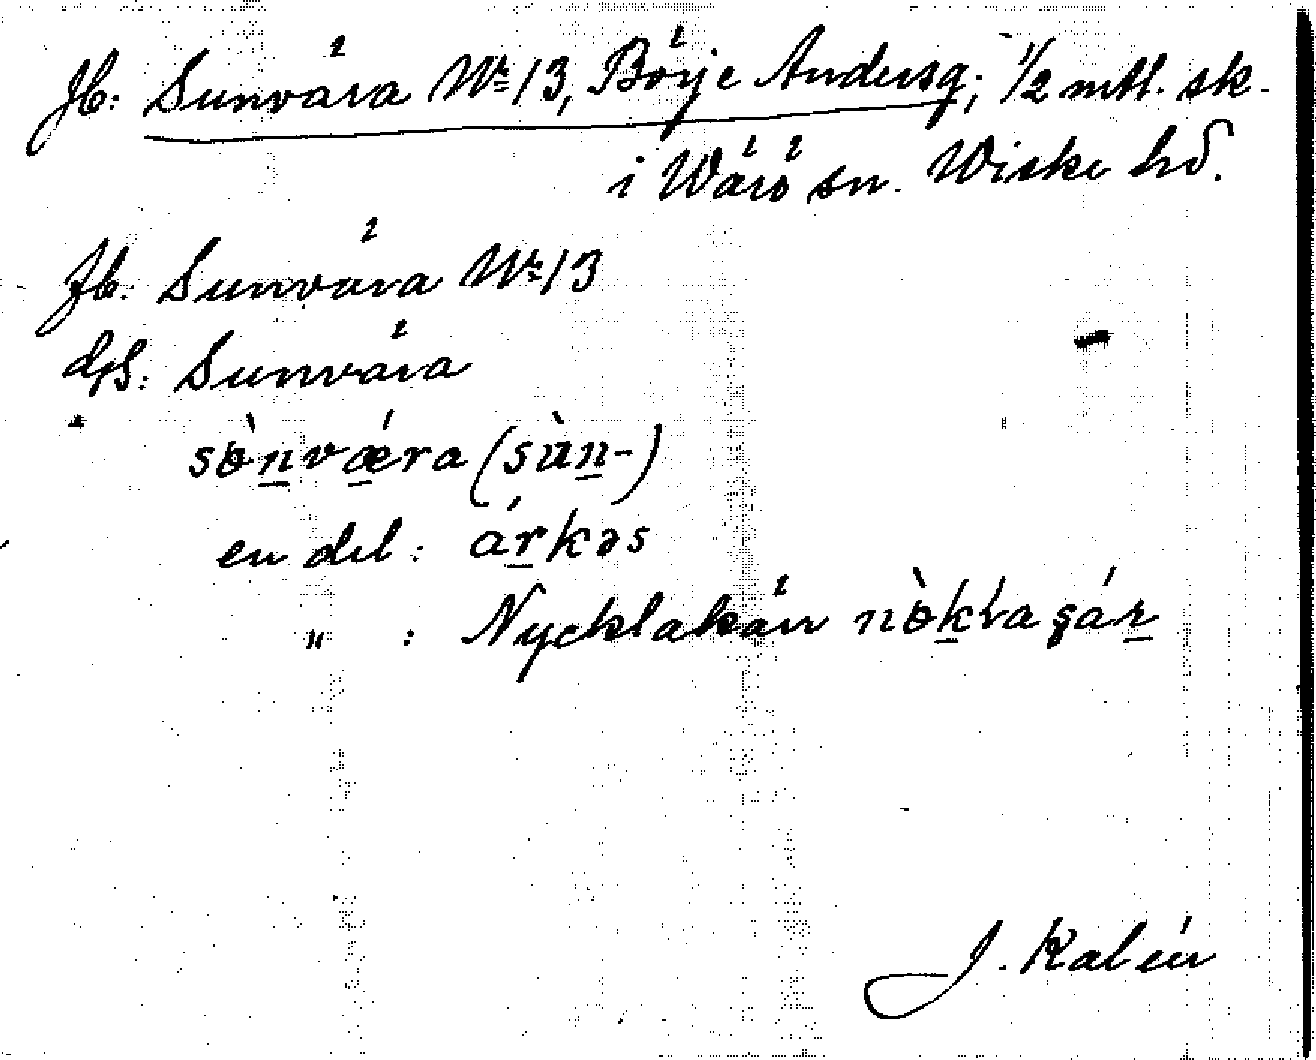 Jb: Sunvära Nr 13, Börje Andersg; 1/2 mtl. sk.
i Wärö sn. Wiske hd.
Jb: Sunvära Nr 13
dpS: Sunvära
sɵ̀n̲vǽ̲ra (sùn̲-)
en del: ár̲kəs
" : Nycklakärr
J. Kalén